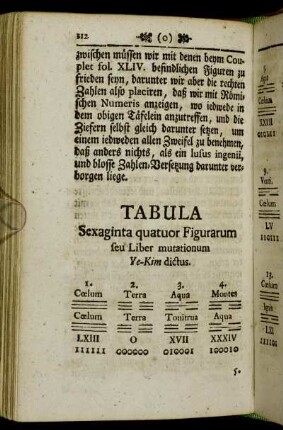 212 (o)
zwischen müssen wir mit denen beym Cou-
plet fol. XLIV. befindlichen Figuren zu
frieden seyn, darunter wir aber die rechten
Zahlen also placiren, daß wir mit Römi-
schen Numeris anzeigen, wo iedwede in
dem obigen Täfelein anzutreffen, und die
Ziefern selbst gleich darunter setzen, um
einem iedweden allen Zweifel zu benehmen,
daß anders nichts, als ein lusus ingenii,
und blosse Zahlen-Versetzung darunter ver-
borgen liege.
TABULA
Sexaginta quatuor Figurarum
seu Liber mutationum
Ye-Kim dictus.
1. 2. 3. 4.
Cœlum Terra Aqua Montes
Cœlum Terra Tonitrua Aqua
LXIII O XVII XXXIV
111111 000000 010001 100010
5.
XXIII
9.
Cœlum
LV
110111
13.
Cœlum